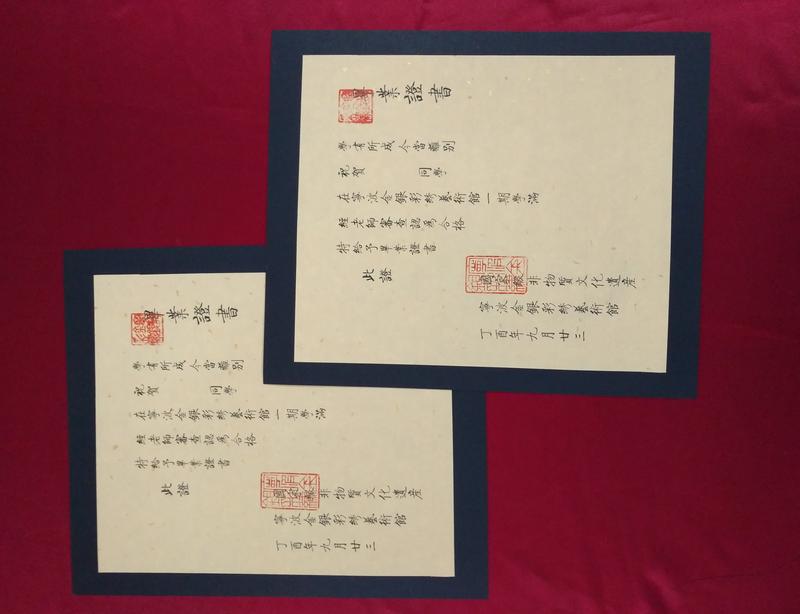 畢業證書
學有所成今當離別
祝賀 同學
在寧波金銀彩繡藝術館一期學滿
經老師審查認為合格
特給予畢業證書
此證
國家級非物質文化遺産
寧波金銀彩繡藝術館
丁酉年九月廿三
畢業證書
學有所成今當離別
祝賀 同學
在寧波金銀彩繡藝術館一期學滿
經老師審查認為合格
特給予畢業證書
此證
國家級非物質文化遺産
寧波金銀彩繡藝術館
丁酉年九月廿三